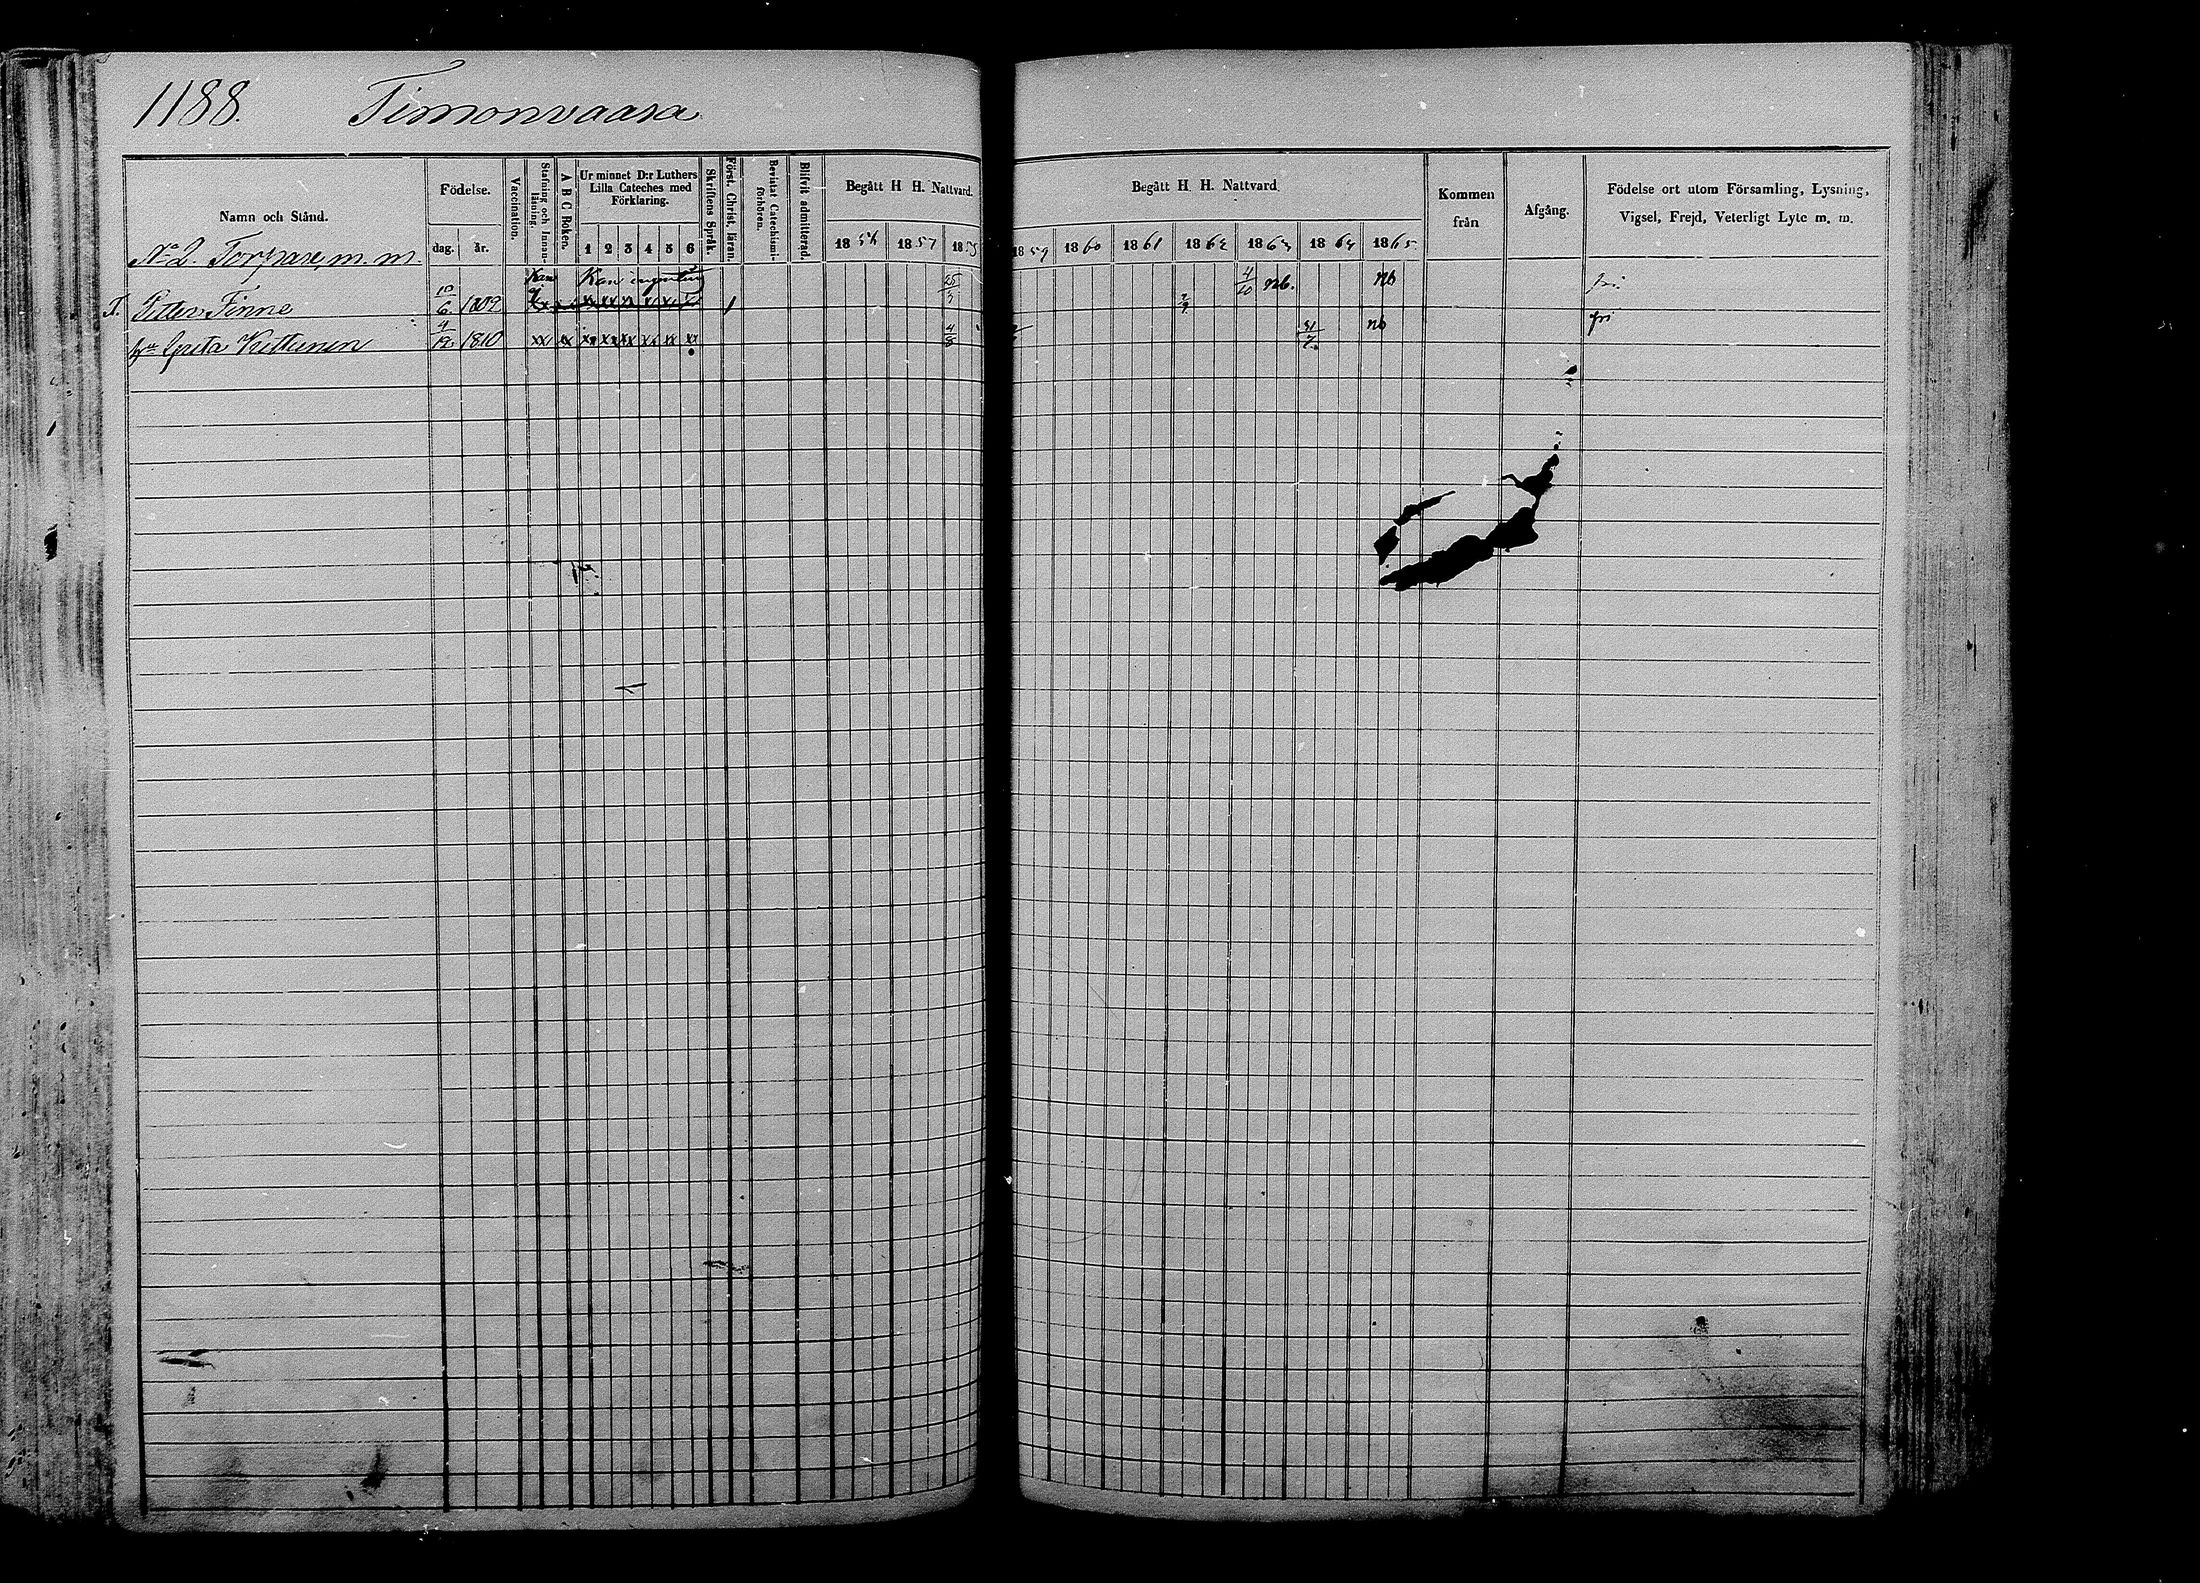 1188. Timonvaara
Namn och Stånd.
Födelse.
dag. år.
Vaccination.
Stafning och Innanläsning.
A B C Boken.
Ur minnet D:r Luthers Lilla Cateches med Förklaring.
1 2 3 4 5 6
Skriftens Språk.
Först. Christ. läran.
Bevistat Catechismiförhören.
Blifvit admitterad.
Begått H H. Nattvard.
1856 1857 1858
Begått H H. Nattvard.
1859 1860 1861 1862 1863 1864 1865
Kommen från
Afgång.
Födelse ort utom Församling, Lysning, Vigsel, Frejd, Veterligt Lyte m. m.
No 2. Torpare, m. m.
Kan Kan ingenting
T. Petter Finne 10/6 1802 4/10 nb. nb fri
hu Greta Voittunen 9/12 1810 xx xx xx xx xx xx xx xx 4/8 31/7 nb fri